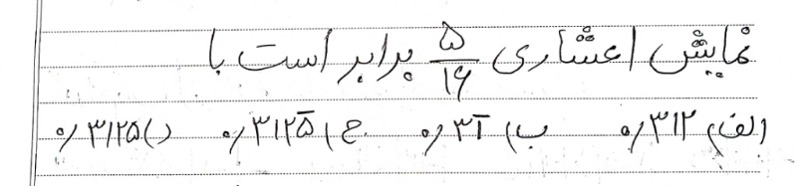 نمایش اعشاری ۵/۱۶ برابر است با
الف) ۰/۳۱۲ ب) ۰/۳۱̅ ج) ۰/۳۱۲۵̅ د) ۰/۳۱۲۵